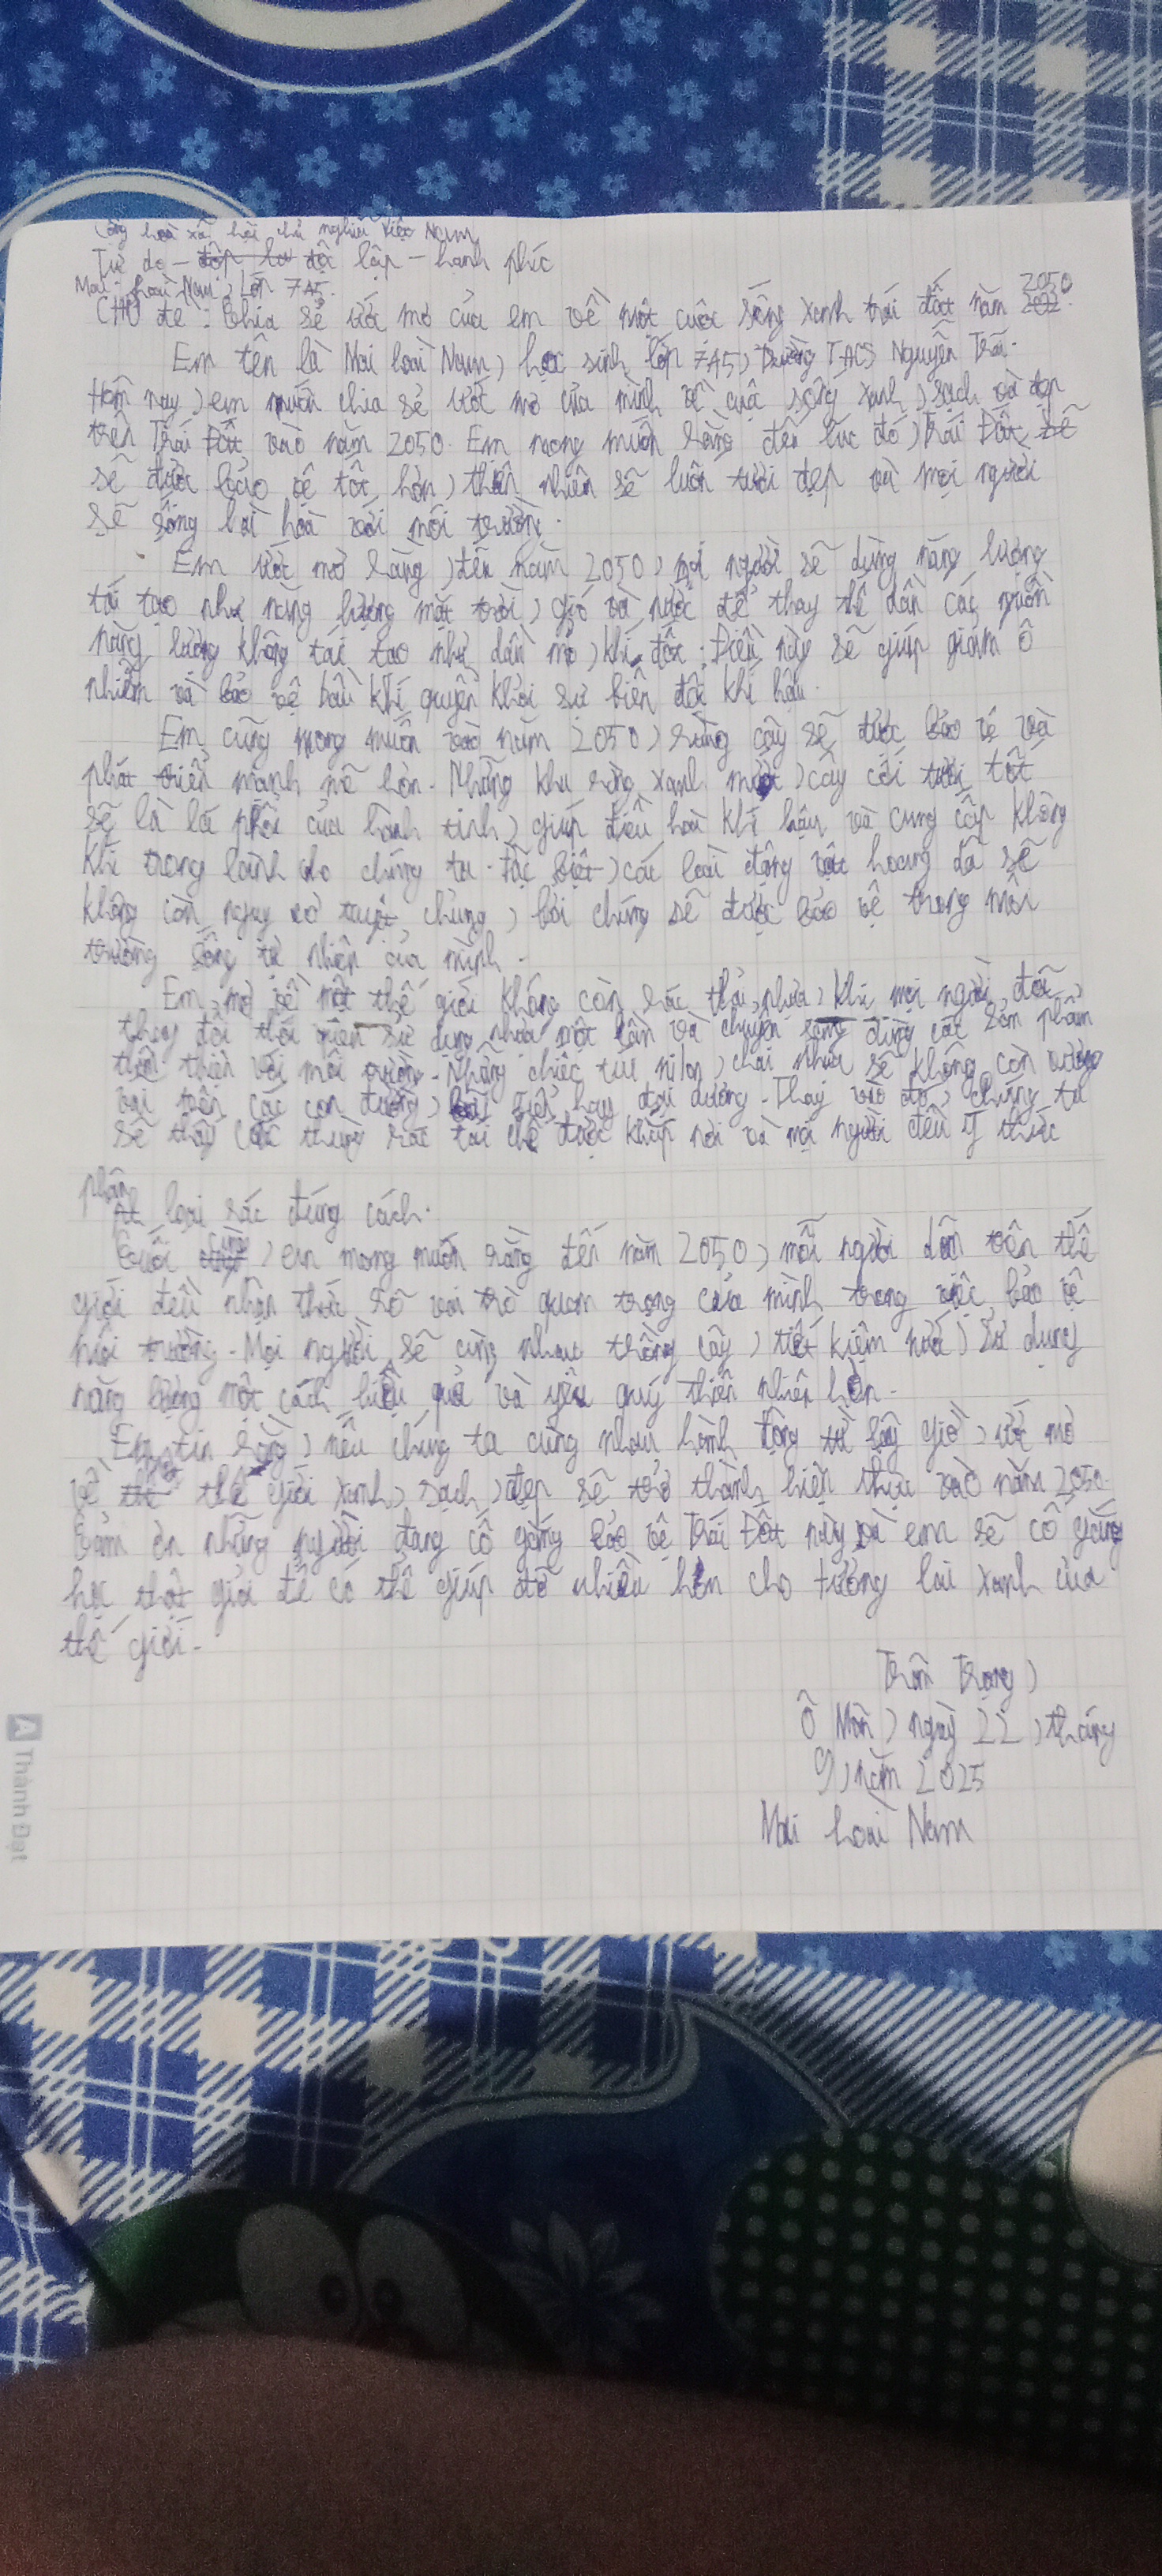 Cộng hoà xã hội chủ nghĩa Việt Nam
Tự do - độc lập - hạnh phúc
Mai hoài Nam, Lớp 7A5.
Chủ đề: Chia sẻ ước mơ của em về một cuộc sống xanh trái đất năm 2050
Em tên là Mai hoài Nam, học sinh lớp 7A5, Trường THCS Nguyễn Trãi.
Hôm nay, em muốn chia sẻ ước mơ của mình về cuộc sống xanh, sạch và đẹp
trên Trái Đất vào năm 2050. Em mong muốn rằng đến lúc đó, Trái Đất
sẽ được bảo vệ tốt hơn, thiên nhiên sẽ luôn tươi đẹp và mọi người
sẽ sống hài hoà với môi trường.
Em ước mơ rằng, đến năm 2050, mọi người sẽ dùng năng lượng
tái tạo như năng lượng mặt trời, gió và nước để thay thế dần các nguồn
năng lượng không tái tạo như dầu mỏ, khí đốt. Điều này sẽ giúp giảm ô
nhiễm và bảo vệ bầu khí quyển khỏi sự biến đổi khí hậu.
Em cũng mong muốn vào năm 2050, rừng cây sẽ được bảo vệ và
phát triển mạnh mẽ hơn. Những khu rừng xanh mướt, cây cối tươi tốt
sẽ là lá phổi của hành tinh, giúp điều hoà khí hậu và cung cấp không
khí trong lành cho chúng ta. Đặc biệt, các loài động vật hoang dã sẽ
không còn nguy cơ tuyệt chủng, bởi chúng sẽ được bảo vệ trong môi
trường sống tự nhiên của mình.
Em mơ về một thế giới không còn rác thải nhựa, khi mọi người đã
thay đổi thói quen sử dụng nhựa một lần và chuyển sang dùng các sản phẩm
thân thiện với môi trường. Những chiếc túi nilon, chai nhựa sẽ không còn vương
vãi trên các con đường, bãi biển hay đại dương. Thay vào đó, chúng ta
sẽ thấy các thùng rác tái chế được khắp nơi và mọi người đều ý thức
phân loại rác đúng cách.
Cuối cùng, em mong muốn rằng đến năm 2050, mỗi người dân trên thế
giới đều nhận thức rõ vai trò quan trọng của mình trong việc bảo vệ
môi trường. Mọi người sẽ cùng nhau trồng cây, tiết kiệm nước, sử dụng
năng lượng một cách hiệu quả và yêu quý thiên nhiên hơn.
Em tin rằng, nếu chúng ta cùng nhau hành động từ bây giờ, ước mơ
về thế giới xanh, sạch, đẹp sẽ trở thành hiện thực vào năm 2050.
Cảm ơn những người đang cố gắng bảo vệ Trái Đất này và em sẽ cố gắng
học thật giỏi để có thể giúp đỡ nhiều hơn cho tương lai xanh của
thế giới.
Trân Trọng,
Ô Môn, ngày 22, tháng
9, năm 2025
Mai hoài Nam
A Thành Đạt